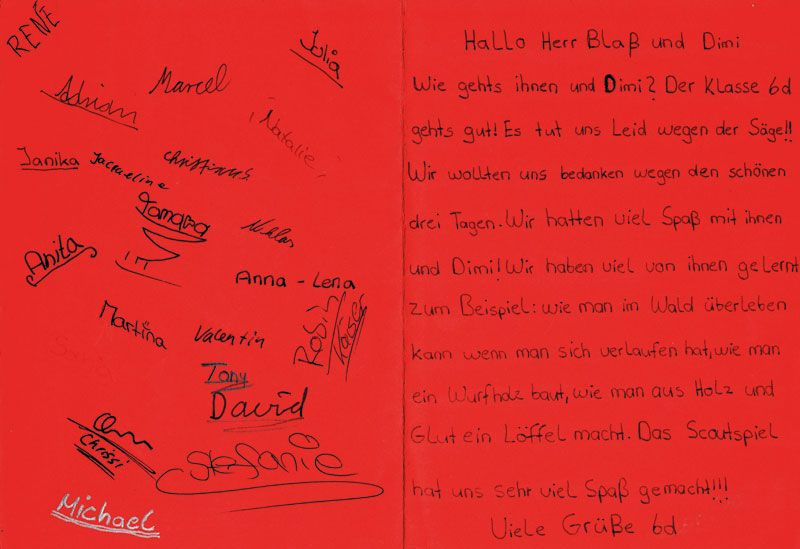 RENE
Julia
Marcel
Adrian
Natalie
Janika
Jacqueline
Christianus
Tamara
Niklas
Anita
Anna-Lena
Martina
Valentin
Robin Kaiser
Tony
David
Chrissi
Stefanie
Michael
Hallo Herr Blaß und Dimi
Wie gehts ihnen und Dimi? Der Klasse 6d
gehts gut! Es tut uns Leid wegen der Säge!!
Wir wollten uns bedanken wegen den schönen
drei Tagen. Wir hatten viel Spaß mit ihnen
und Dimi! Wir haben viel von ihnen gelernt
zum Beispiel: wie man im Wald überleben
kann wenn man sich verlaufen hat, wie man
ein Wurfholz baut, wie man aus Holz und
Glut ein Löffel macht. Das Scoutspiel
hat uns sehr viel Spaß gemacht!!!
Viele Grüße 6d